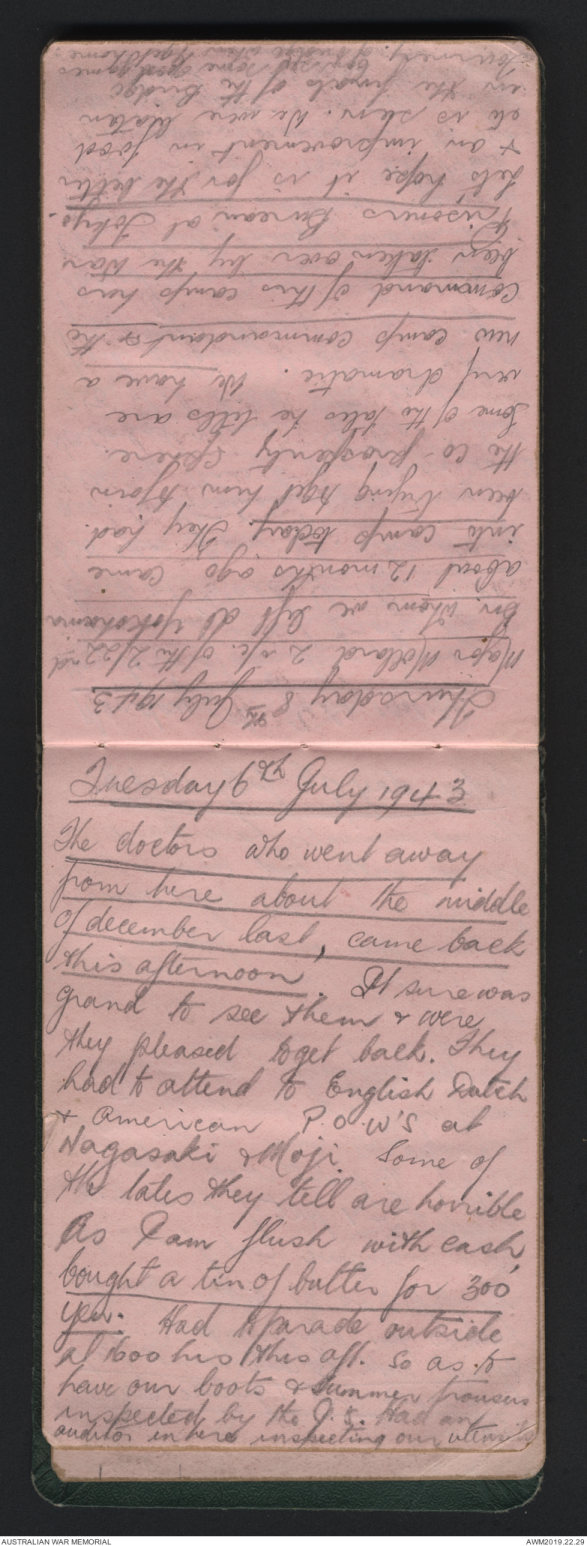 Tuesday 6th July 1943
The doctors who went away
from here about the middle
of december last, came back
this afternoon. It sure was
grand to see them & were
they pleased to get back. They
had to attend to English Dutch
& American P.O.W'S at
Nagasaki & Moji. Some of
the tales they tell are horrible
As I am flush with cash,
bought a tin of butter for 300
yen. Had to parade outside
at 1600 hrs this aft. so as to
have our boots & summer trousers
inspected by the J.S. Had an
auditor in here inspecting our utensils
Thursday 8th July 1943
Major Mollard 2 i/c. of the 2/22nd
Bn. whom we left at Yokohama
about 12 months ago came
into camp today. They had
been trying to get him to join
the co-prosperity sphere.
Some of the tales he tells are
very dramatic. We have a
new camp commandant & the
command of this camp has
been taken over by the War
Prisoners Bureau at Tokyo.
Let's hope it is for the better
& an improvement in food
etc is seen. We were beaten
in the finals of the Bridge
Tourney. some good games
of bridge when I get home
AUSTRALIAN WAR MEMORIAL
AWM2019.22.29